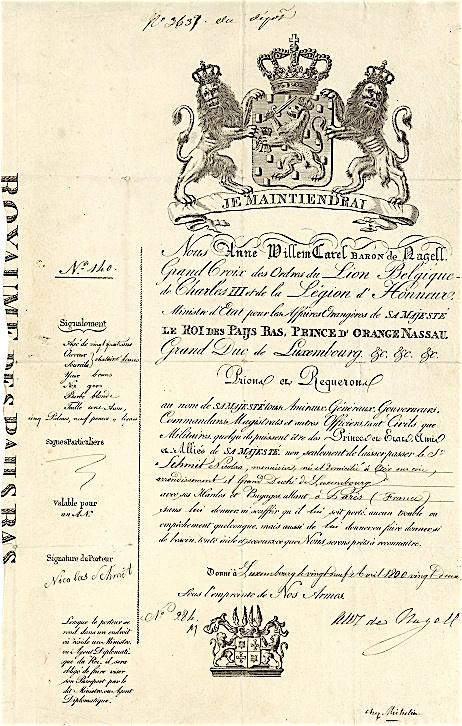 No 3637. du dépôt
JE MAINTIENDRAI
ROYAUME DES PAIJS BAS
Nous Anne Willem Carel BARON DE Nagell.
Grand Croix des Ordres du Lion Belgique
de Charles III et de la Légion d'Honneur.
Ministre d'Etat pour les Affaires Etrangères de SA MAJESTÉ
LE ROI DES PAIJS BAS, PRINCE D'ORANGE NASSAU.
Grand Duc de Luxembourg &c. &c. &c.
Prions et Requerons
au nom de SA MAJESTÉ tous Amiraux, Généraux, Gouverneurs,
Commandans, Magistrats et autres Officiers tant Civils que
Militaires quelqu'ils puissent être des Princes et Etats Amis
et Alliés de SA MAJESTÉ, non seulement de laisser passer le Sr
Schmit Nicolas, menuisier, né et domicilié à
arrondissement et Grand Duché de Luxembourg
avec ses Hardes et Bagages allant à Paris (France)
sans lui donner ni souffrir qu'il lui soit porté, aucun trouble ou
empêchement quelconque, mais aussi de lui donner ou faire donner, si
de besoin, toute aide et secours ce que Nous serons prêts à reconnaître.
Donné à Luxembourg le vingt neuf Avril 1800 vingt deux
Sous l'empreinte de Nos Armes.
No 284
AWC de Nagell
No 140.
Signalement
Agé de vingt quatre ans
Cheveux
Sourcils
Yeux bruns
Nez gros
Barbe blonde
Taille une Aune,
cinq Palmes, neuf pouces
Signes Particuliers
Valable pour
un AN.
Signature du Porteur
Nicolas Schmit
Lorsque le porteur se
rend dans un endroit
où réside un Ministre,
ou Agent Diplomati-
que du Roi, il sera
obligé de faire viser
son Passeport par le
dit Ministre, ou Agent
Diplomatique.